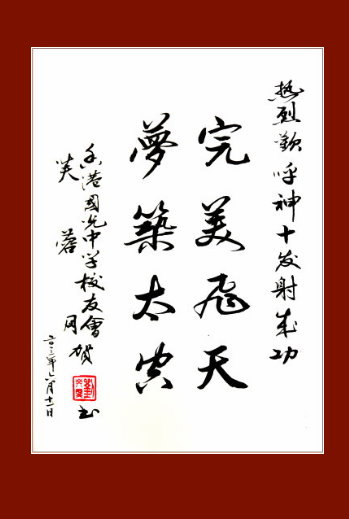 热烈歡呼神十发射成功
完美飛天
夢築太空
香港國光中学校友會
芙蓉 同賀
二〇一三年六月十一日 书